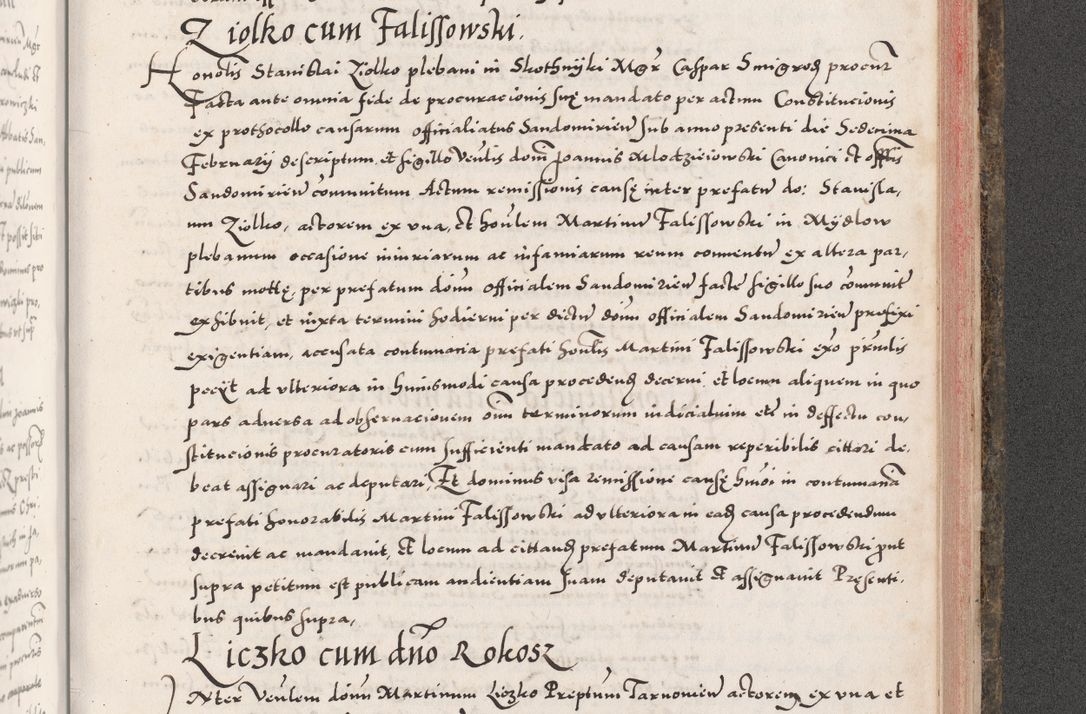 Ziolko cum Falissowski.
Honolis Stanislai Ziolko plebani in Skothnijki Mgr Caspar Smigrod procur
Facta ante omnia fide de procuracionis suę mandato per actum Constitucionis
ex prothocollo causarum officialiatus Sandomirien sub anno presenti die Sedecima
Februarij descriptum, et sigillo Venlis domi Joannis Mlodziciowski Canonici et offlis
Sandomirien communitum Actum remissionis causę inter prefatū do: Stanisla,
um Ziolko, actorem ex una, et honlem Martinū Falissowski in Mijdlow
plebanum occasione iniuriarum ac infamiarum reum conventū ex altera par,
tibus motłę, per prefatum dōnū officialem Sandomirien factę sigillo suo cōmunit
exhibuit, et iuxta termini hodierni per dictū dōnū officialem Sandomirien prefixi
exigentiam, accusata contumacia prefati honlis Martini Falissowski
petijt ad ulteriora in huiusmodi causa procedend decerni, et locum aliquem in quo
pars adversa ad observacionem oīm terminorum iudicialium etc in deffectu con,
stitucionis procuratoris cum sufficienti mandato ad causam reperibilis cittari de,
beat assignari ac deputari, Et dominus visa remissione causę hmōi in contumaciā
prefati honorabilis Martini Falissowski ad ulteriora in ead causa procedendum
decrevit ac mandavit, et locum ad cittand prefatum Martinū Falissowski put
supra petitum est publicam audientiam suam deputavit et assignavit Pręsenti,
bus quibus supra,
Liczko cum dnō Rokosz
INter Venlem dōnū Martinum Liczko Preptum Tarnovien actorem ex una et